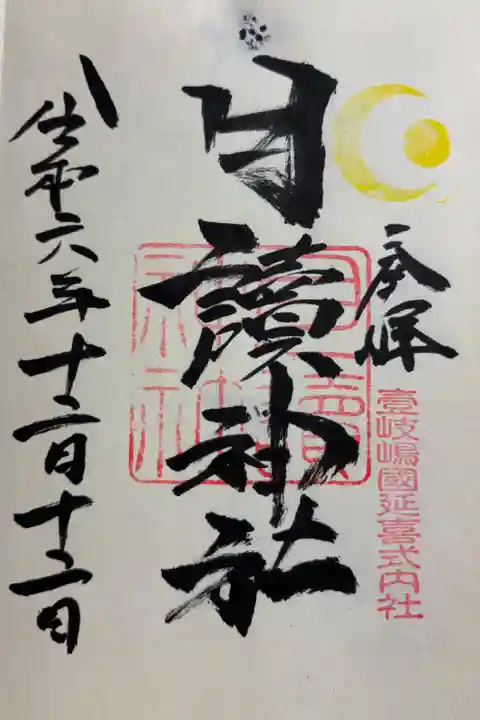 奉拝
壹岐嶋國延喜式内社
月讀神社
令和六年十二月十二日